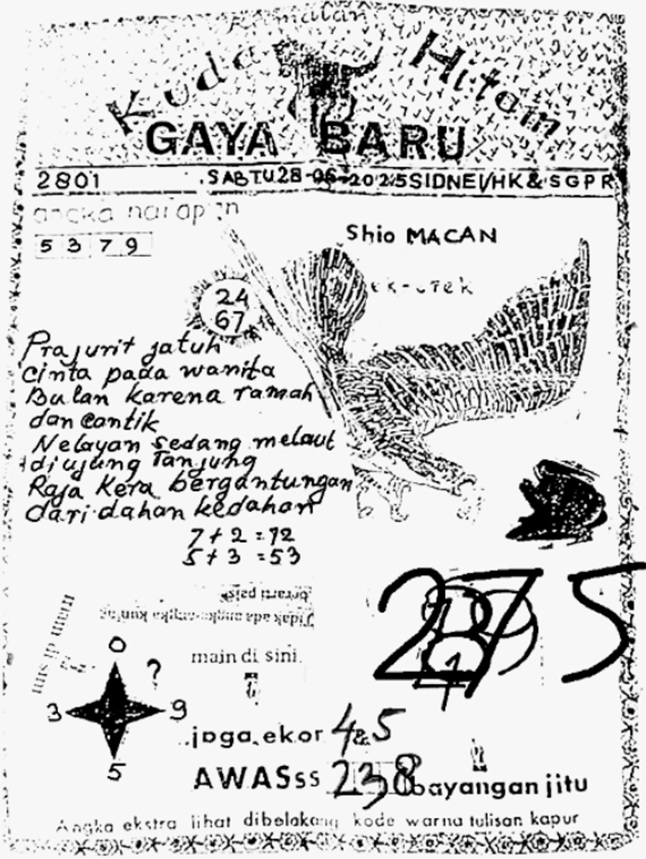 Ramalan
Kuda Hitam
GAYA BARU
2801 SABTU 28-06-2025 SIDNEI/HK & SGPR
angka harapan
5 3 7 9
Shio MACAN
24
67
Prajurit jatuh
Cinta pada wanita
Bulan karena ramah
dan cantik
Nelayan sedang melaut
diujung Tanjung
Raja Kera bergantungan
dari dahan kedahan
7+2=72
5+3=53
berarti
Tidak ada angka-angka kuning
main di sini
0
?
3 9
5
main di sini
275
jaga ekor 4&5
AWASss 238 bayangan jitu
Angka ekstra lihat dibelakang kode warna tulisan kapur